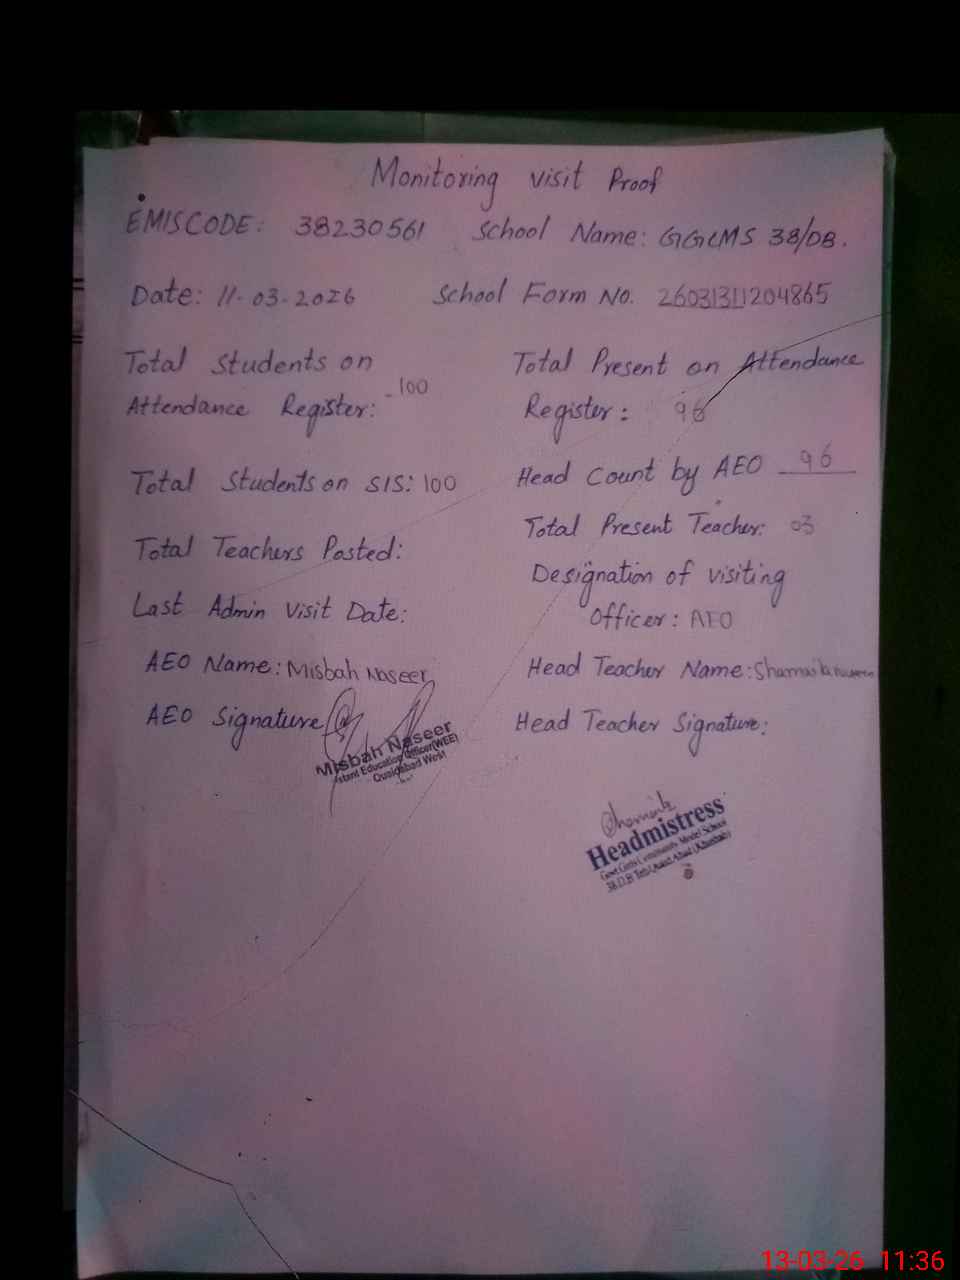 Monitoring visit Proof
EMISCODE: 38230561 School Name: GGCMS 38/DB.
Date: 11-03-2026 School Form No. 26031311204865
Total Students on
Attendance Register: 100
Total Present on Attendance
Register: 96
Total Students on SIS: 100
Head Count by AEO 96
Total Teachers Posted:
Total Present Teacher: 03
Last Admin Visit Date:
Designation of visiting
Officer: AEO
AEO Name: Misbah Naseer
Head Teacher Name: Shamaila
AEO Signature
Head Teacher Signature:
Misbah Naseer
stant Education Officer(WEE)
Quaidabad West
Headmistress
Govt.Girls Community Model School
38.D.B Teh:Quaid Abad (Khushab)
13-03-26 11:36